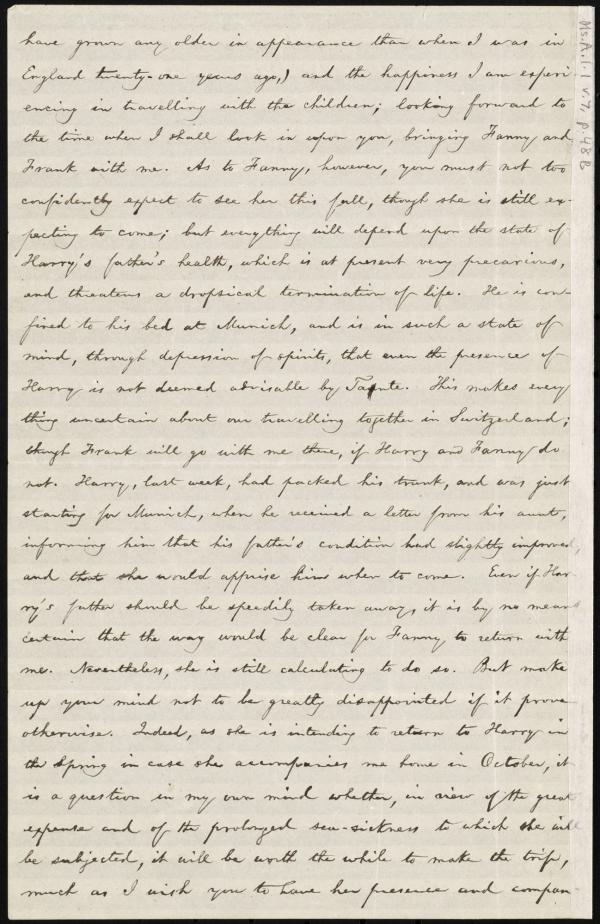 have grown any older in appearance than when I was in
England twenty-one years ago,) and the happiness I am experi-
encing in travelling with the children; looking forward to
the time when I shall look in upon you, bringing Fanny and
Frank with me. As to Fanny, however, you must not too
confidently expect to see her this fall, though she is still ex-
pecting to come; but everything will depend upon the state of
Harry's father's health, which is at present very precarious,
and threatens a dropsical termination of life. He is con-
fined to his bed at Munich, and is in such a state of
mind, through depression of spirits, that even the presence of
Harry is not deemed advisable by Tante. This makes every
thing uncertain about our travelling together in Switzerland;
though Frank will go with me there, if Harry and Fanny do
not. Harry, last week, had packed his trunk, and was just
starting for Munich, when he received a letter from his aunt,
informing him that his father's condition had slightly improved,
and that she would apprise him when to come. Even if Har-
ry's father should be speedily taken away, it is by no means
certain that the way would be clear for Fanny to return with
me. Nevertheless, she is still calculating to do so. But make
up your mind not to be greatly disappointed if it prove
otherwise. Indeed, as she is intending to return to Harry in
the Spring in case she accompanies me home in October, it
is a question in my own mind whether, in view of the great
expense and of the prolonged sea-sickness to which she will
be subjected, it will be worth the while to make the trip,
much as I wish you to have her presence and compan-
Ms.A.1.1 v.7, p.48B